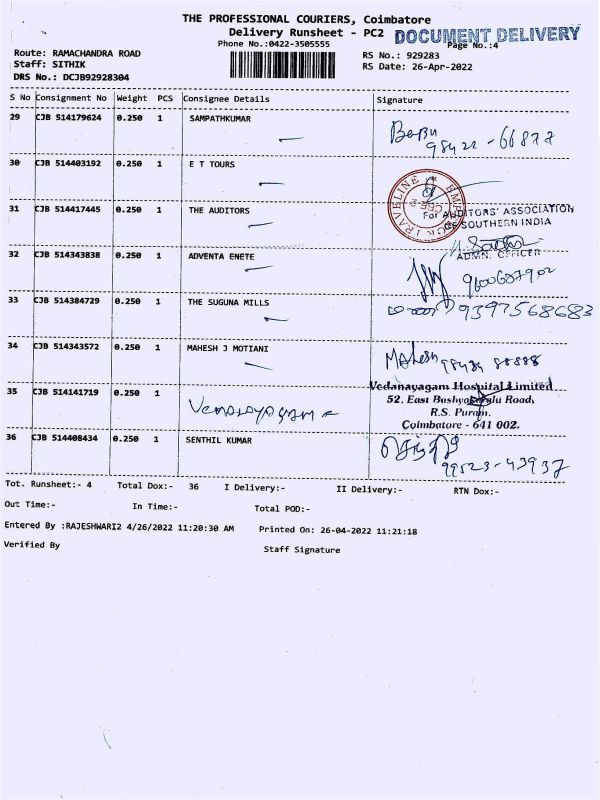 THE PROFESSIONAL COURIERS, Coimbatore
Delivery Runsheet - PC2
DOCUMENT DELIVERY
Phone No.:0422-3505555
Page No.:4
Route: RAMACHANDRA ROAD
RS No.: 929283
Staff: SITHIK
RS Date: 26-Apr-2022
DRS No.: DCJB92928304
S No Consignment No Weight PCS Consignee Details Signature
29 CJB 514179624 0.250 1 SAMPATHKUMAR
Babu
98422-66877
30 CJB 514403192 0.250 1 E T TOURS
31 CJB 514417445 0.250 1 THE AUDITORS
For AUDITORS' ASSOCIATION
OF SOUTHERN INDIA
ADMN. OFFICER
32 CJB 514343838 0.250 1 ADVENTA ENETE
9600687902
33 CJB 514384729 0.250 1 THE SUGUNA MILLS
9397568683
34 CJB 514343572 0.250 1 MAHESH J MOTIANI
Mahesh
35 CJB 514141719 0.250 1
Vedanayagam Hospital Limited
52, East Bashyakaralu Road,
R.S. Puram,
Coimbatore - 641 002.
36 CJB 514408434 0.250 1 SENTHIL KUMAR
99523-43937
Tot. Runsheet:- 4 Total Dox:- 36 I Delivery:- II Delivery:- RTN Dox:-
Out Time:- In Time:- Total POD:-
Entered By :RAJESHWARI2 4/26/2022 11:20:30 AM Printed On: 26-04-2022 11:21:18
Verified By Staff Signature